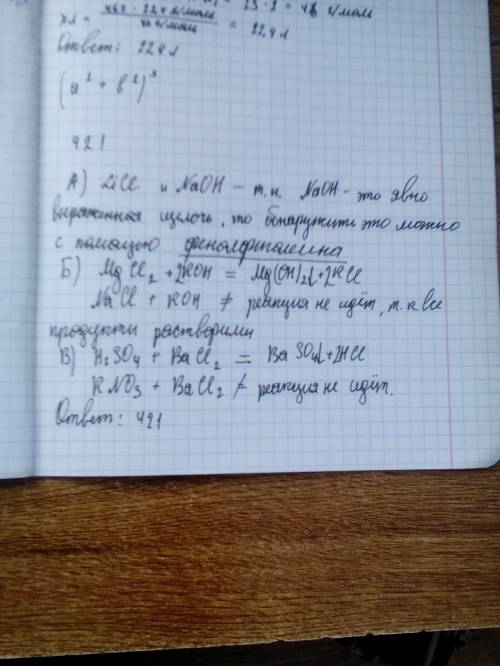 = 23·2 = 46 г/моль
= 22,4 л
Ответ: 22,4 л
(a² + b²)³
421
А) LiCl и NaOH – т.к. NaOH - это явно
выраженная щелочь, то обнаружить это можно
с помощью фенолфталеина
Б) MgCl₂ + 2KOH = Mg(OH)₂↓+2KCl
NaCl + KOH ≠ реакция не идёт, т.к все
продукты растворимы
В) H₂SO₄ + BaCl₂ = BaSO₄↓+2HCl
KNO₃ + BaCl₂ ≠ реакция не идёт.
Ответ: 421